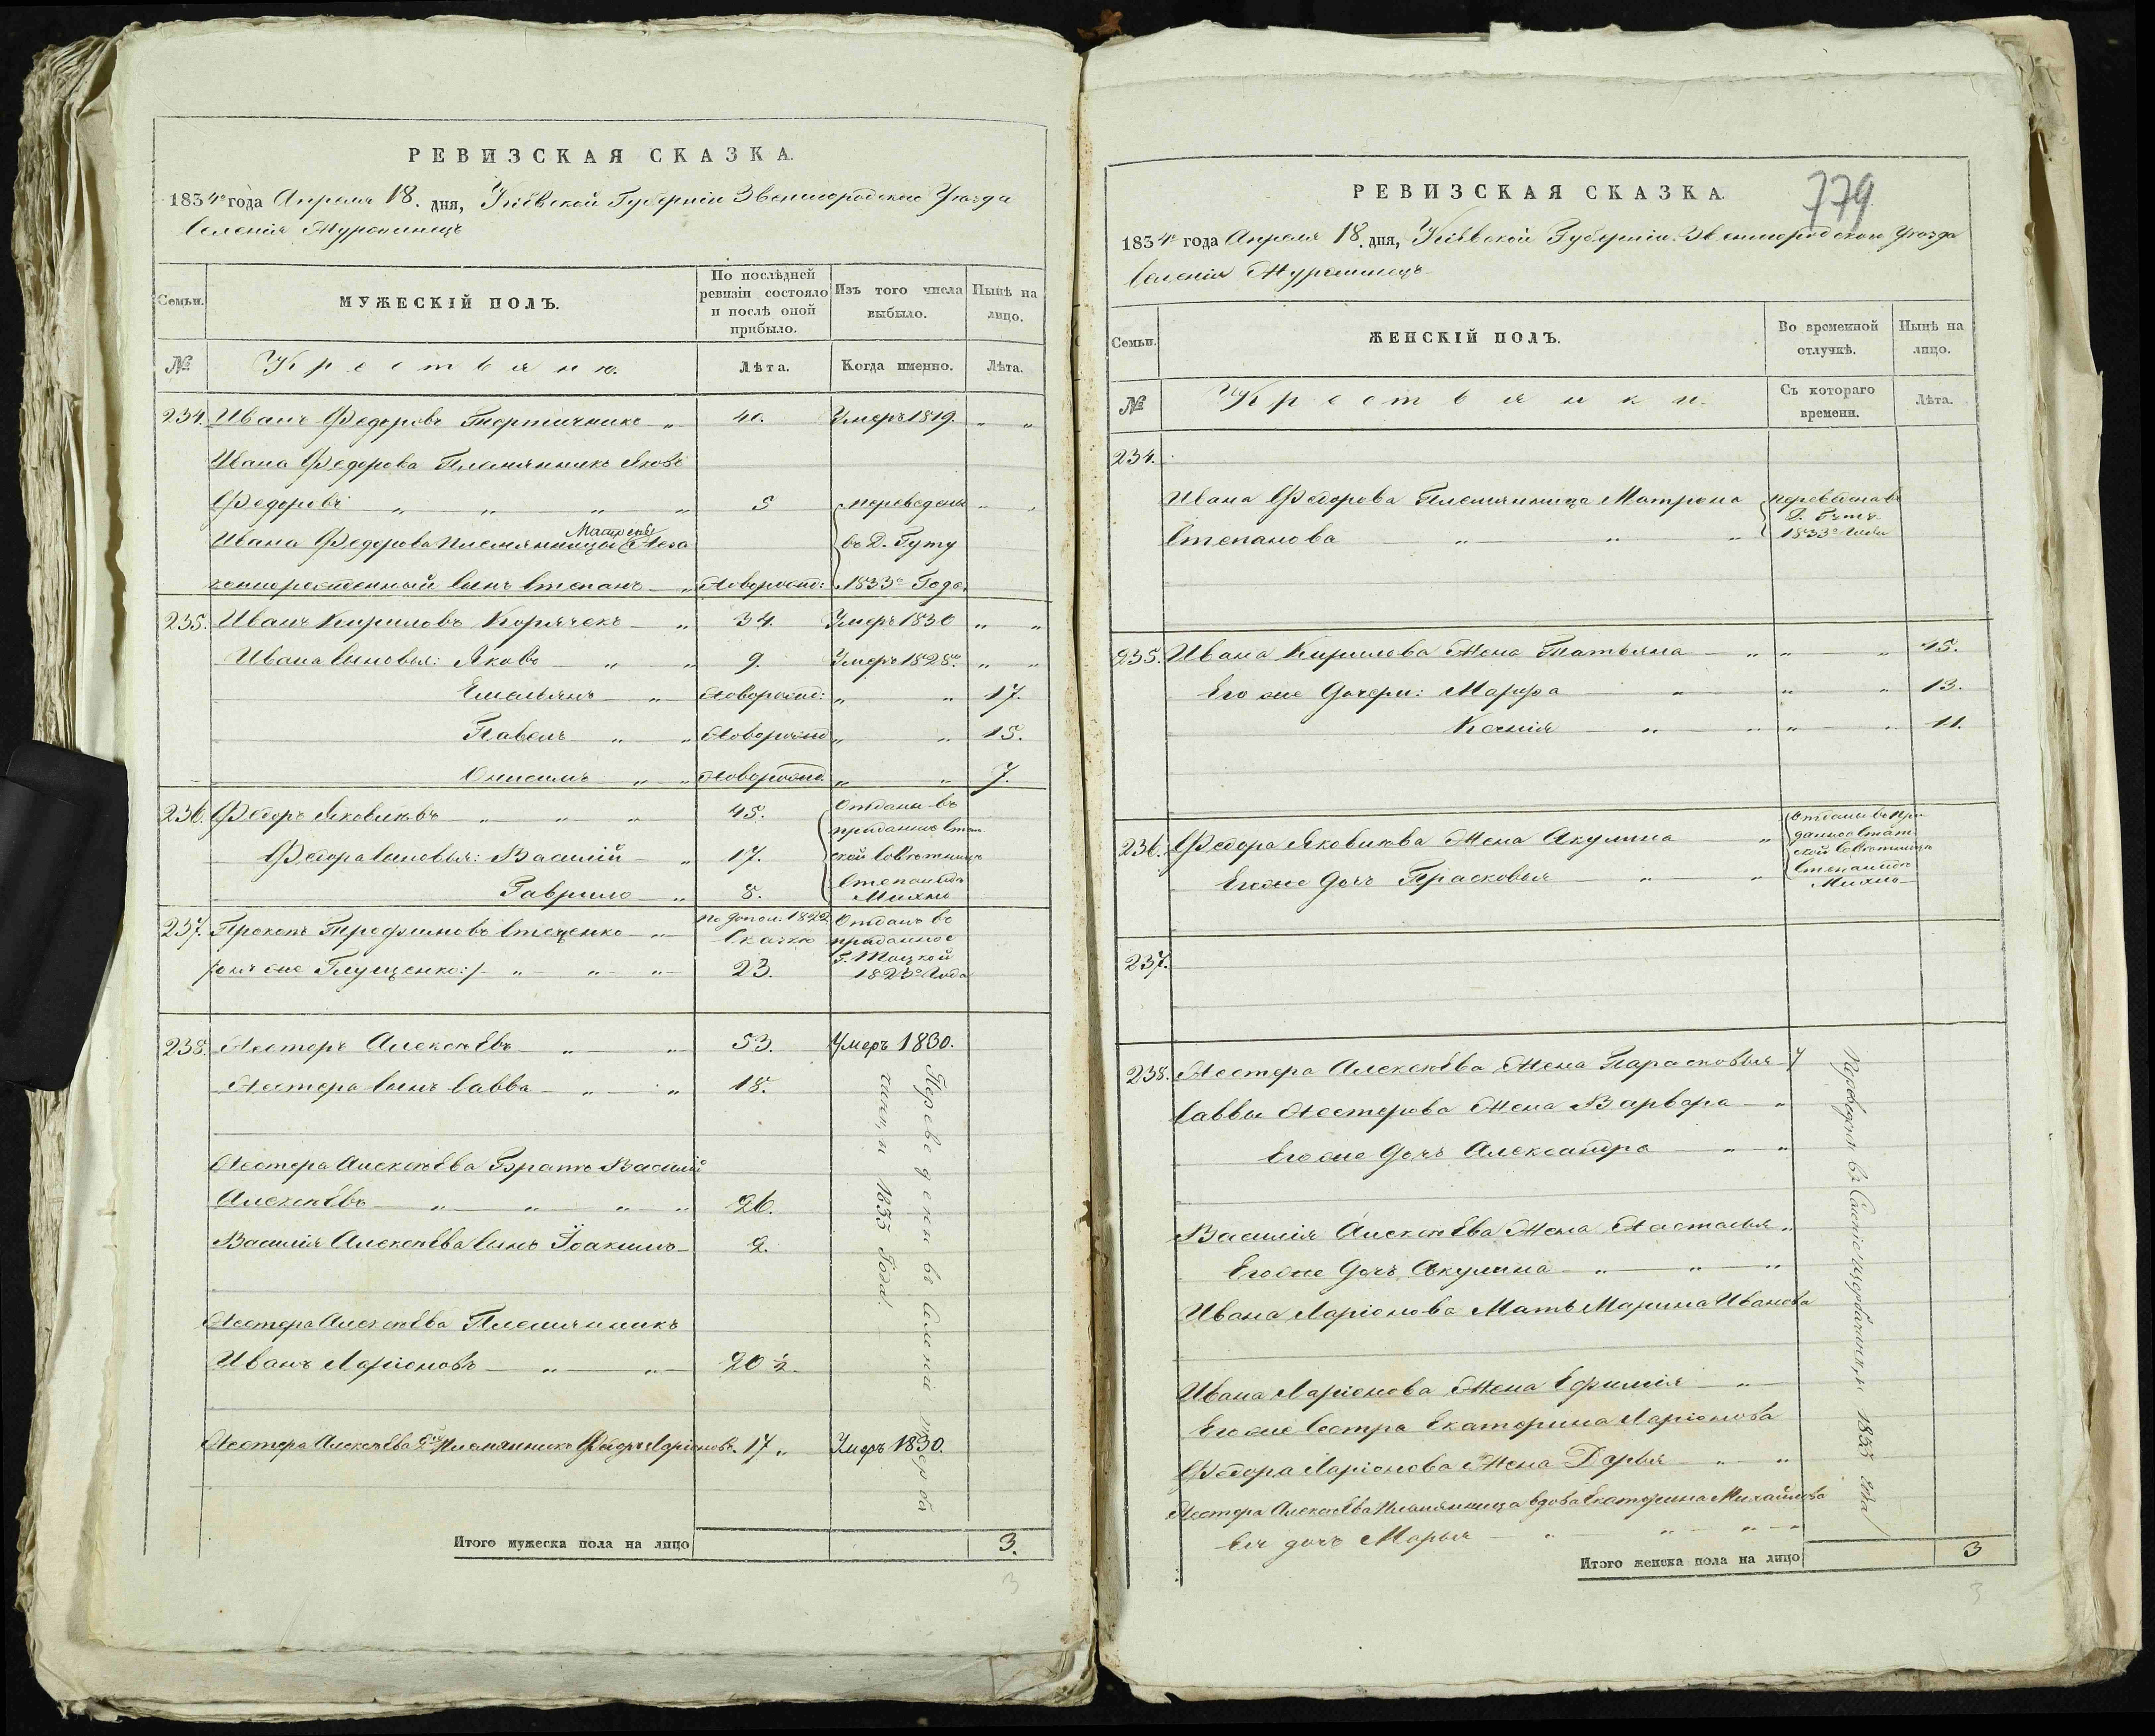 РЕВИЗСКАЯ СКАЗКА.
1834го года Апреля 18. дня, Кіевской Губерніи Звенигородскаго Уезда
Селенія
Семьи.
МУЖЕСКІЙ ПОЛЪ.
По послѣдней ревизіи состояло и послѣ оной прибыло.
Изъ того числа выбыло.
Нынѣ на лицо.
№
Крестьяне.
Лѣта.
Когда именно.
Лѣта.
234. Иванъ Федоровъ Тертичникъ „ 40. Умеръ 1819. „ „
Ивана Федорова Племянникъ Яковъ
Федоровъ „ „ „ „ 5 переведены „ „
Матрены
Ивана Федорова племянницы въ Д. Гуту
сынъ Степанъ „ Новорожд: 1833го Года.
235. Иванъ Кириловъ „ 34. Умеръ 1830 „ „
Ивана Сыновья: Яковъ „ „ 9. Умеръ 1828го. „ „
Емельянъ „ Новорожд: „ „ 17.
Павелъ „ „ Новорожд „ „ 15.
Онисимъ „ „ Новорожд. „ „ 7.
236. Федоръ Яковлевъ „ „ „ 45. Отданы въ
приданное Стат
Федора Сыновья: Василій „ 17. ской Совѣтницѣ
Степанидѣ
Гаврило „ 8.
237. Прокопъ Трофимовъ Стеценко „ по допол: 1822 Отданъ въ
Сказкѣ приданное
/онъ же Глущенко:/ „ „ „ 23. Г.
1823го Года
238. Нестеръ Алексѣевъ „ „ 53. Умеръ 1830.
Нестера Сынъ Савва „ „ 18.
Нестера Алексѣева Братъ Василій
Алексѣевъ „ „ „ „ 26.
Василія Алексѣева Сынъ Іоакимъ 2.
Нестера Алексѣева Племянникъ
Иванъ Ларіоновъ „ „ 20 ½.
Нестера Алексѣева племянникъ Федоръ Ларіоновъ. 17 „ Умеръ 1830.
Переведены въ 1833 Года.
Итого мужеска пола на лицо 3.
3
779
РЕВИЗСКАЯ СКАЗКА.
1834го года Апреля 18. дня, Кіевской Губерніи Звенигородскаго Уезда
Селенія
Семьи.
ЖЕНСКІЙ ПОЛЪ.
Во временной отлучкѣ.
Нынѣ на лицо.
№
Крестьянки.
Съ котораго времени.
Лѣта.
234.
Ивана Федорова Племянница Матрона переведена въ
Д. Гуту
Степанова „ „ „ 1833го Года
235. Ивана Кирилова Жена Татьяна „ „ „ 45.
Его же Дочери: Марфа „ „ „ 13.
Ксенія „ „ „ „ 11.
236. Федора Яковлева Жена Акулина „ Отданы въ при
данное Стат
ской Совѣтницѣ
Его же Дочь Прасковья „ „ Степанидѣ
237.
238. Нестера Алексѣева Жена Парасковья
Саввы Нестерова Жена Варвара „
Его же Дочь Александра „ „
Василія Алексѣева Жена Настасья „
Его же Дочь Акулина „ „ „
Ивана Ларіонова Мать Марина Иванова
Ивана Ларіонова Жена Ефимія „
Его же Сестра Екатерина Ларіонова
Федора Ларіонова Жена Дарья „ „
Нестера Алексѣева племянница вдова Екатерина Михайлова
Ея дочь Марья „ „ „ „
Переведены въ 1833 Года
Итого женска пола на лицо 3
3